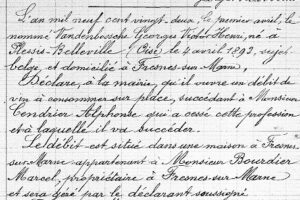 L'an mil neuf cent vingt-deux, le premier avril, le
nommé Vandenbossche Georges Victor Henri, né à
Plessis-Belleville (Oise) le 4 avril 1892, sujet
belge et domicilié à Fresnes-sur-Marne,
Déclare, à la mairie qu'il ouvre un débit de
vin à consommer sur place, succédant à Monsieur
Cendrier Alphonse qui a cessé cette profession
et à laquelle il va succéder.
Le débit est situé dans une maison à Fresnes
sur-Marne appartenant à Monsieur Bourdier
Marcel, propriétaire à Fresnes-sur-Marne
et sera géré par le déclarant soussigné